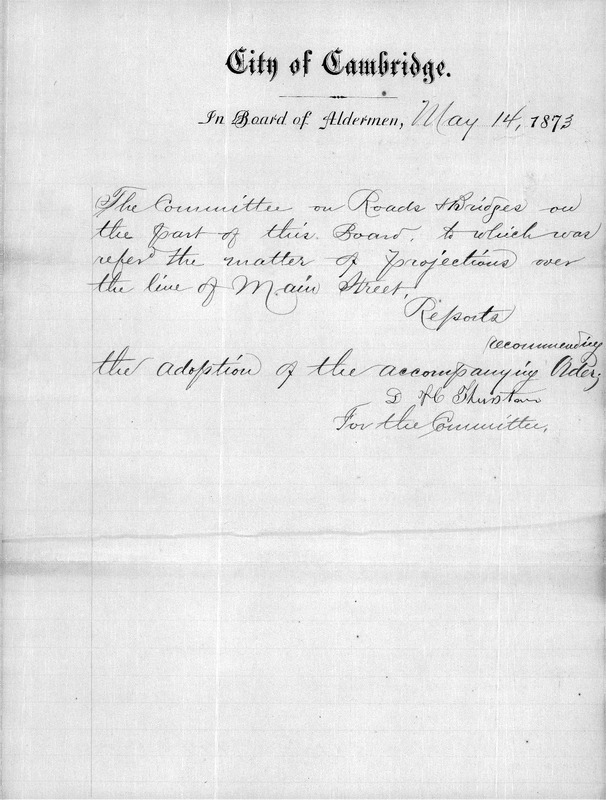 City of Cambridge.
In Board of Aldermen, May 14, 1873
The Committee on Roads & Bridges on
the part of this Board, to which was
refer'd the matter of projections over
the line of Main Street,
Reports
recommending
the adoption of the accompanying Order;
D H C Thurston
For the Committee.